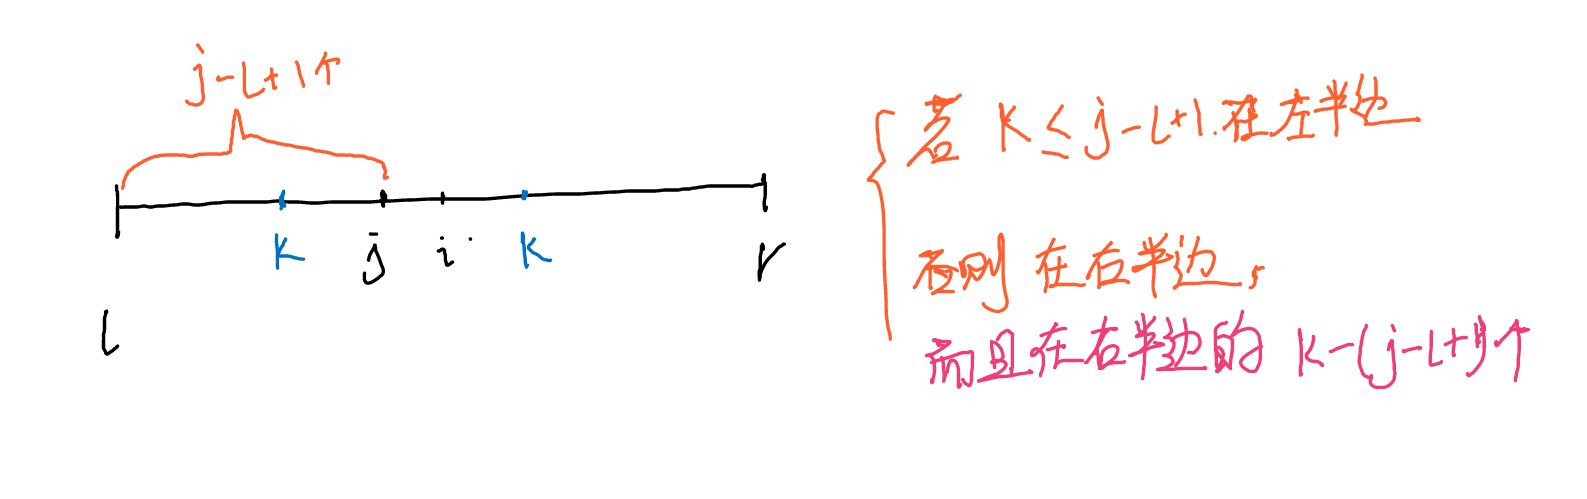 j-l+1个
k j i k r
l
若 k ≤ j-l+1.在左半边
否则 在右半边,
而且在右半边的 k-(j-l+1)个